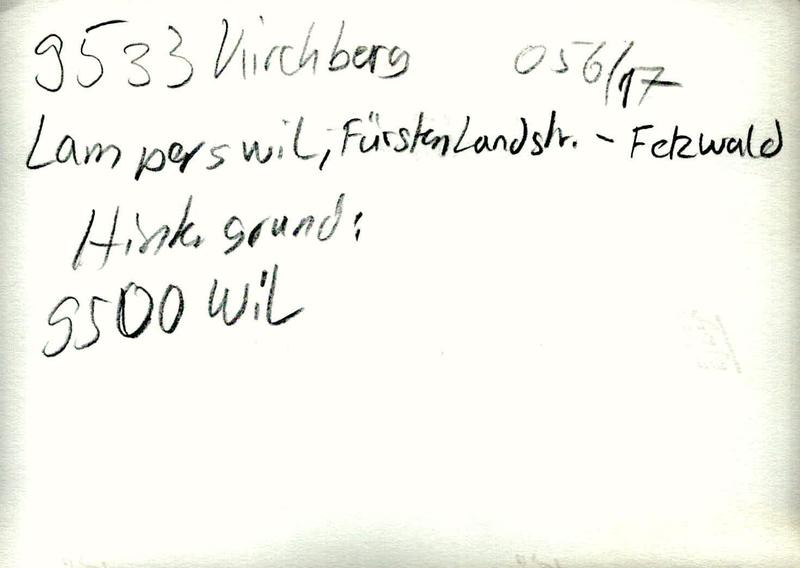 9533 Kirchberg 056/17
Lamperswil, Fürstenlandstr. - Fetzwald
Hinter grund:
9500 Wil